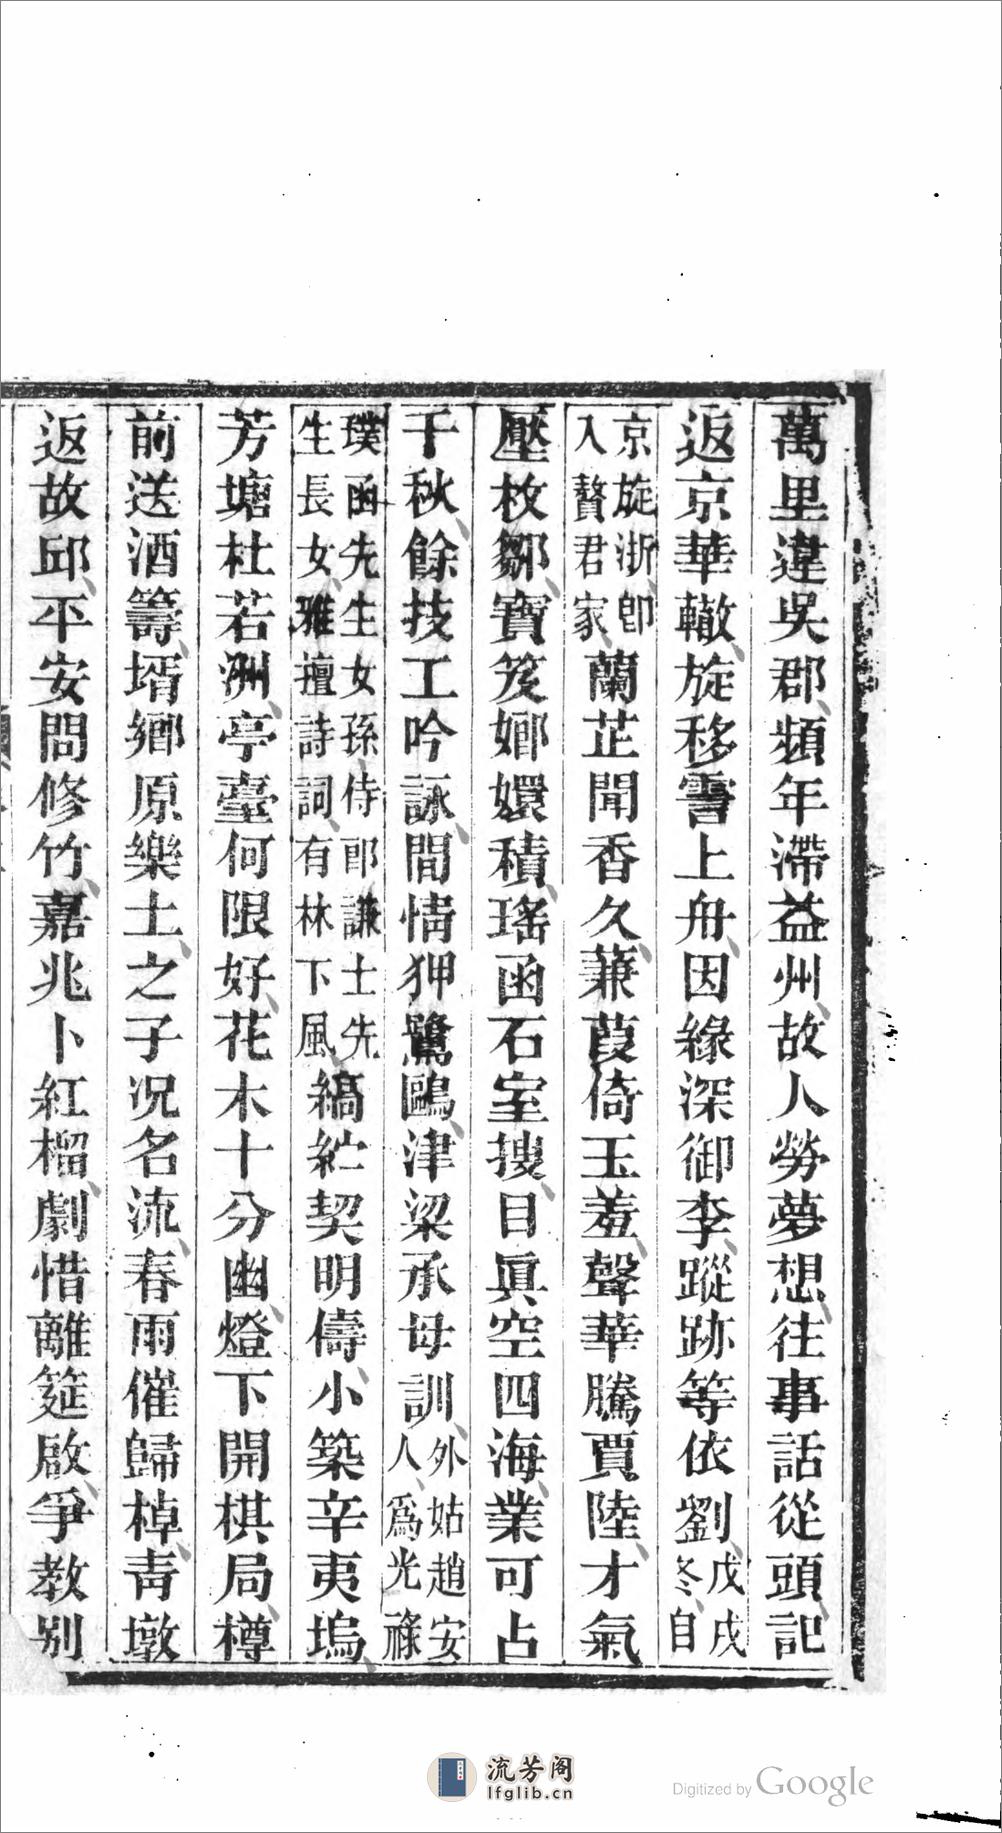 萬里違吳郡、頻年滯益州、故人勞夢想、往事話從頭、記
返京華轍、旋移霅上舟、因緣深御李、蹤跡等依劉、戊戌冬、自
京旋浙、卽入贅君家、蘭芷聞香久、蒹葭倚玉羞、聲華騰賈陸、才氣
壓枚鄒、寶笈嫏嬛積、瑤函石室搜、目眞空四海、業可占
千秋、餘技工吟詠、閒情狎鷺鷗、津梁承母訓、外姑趙安人、爲光祿
璞函先生女孫、侍郞謙士先生長女、雅擅詩詞、有林下風、縞紵契明儔、小築辛夷塢、
芳塘杜若洲、亭臺何限好、花木十分幽、燈下開棋局、樽
前送酒籌、壻鄉原樂土、之子况名流、春雨催歸棹、靑墩
返故邱、平安問修竹、嘉兆卜紅榴、劇惜離筵啟、爭教別
流芳阁
lfglib.cn
Digitized by Google